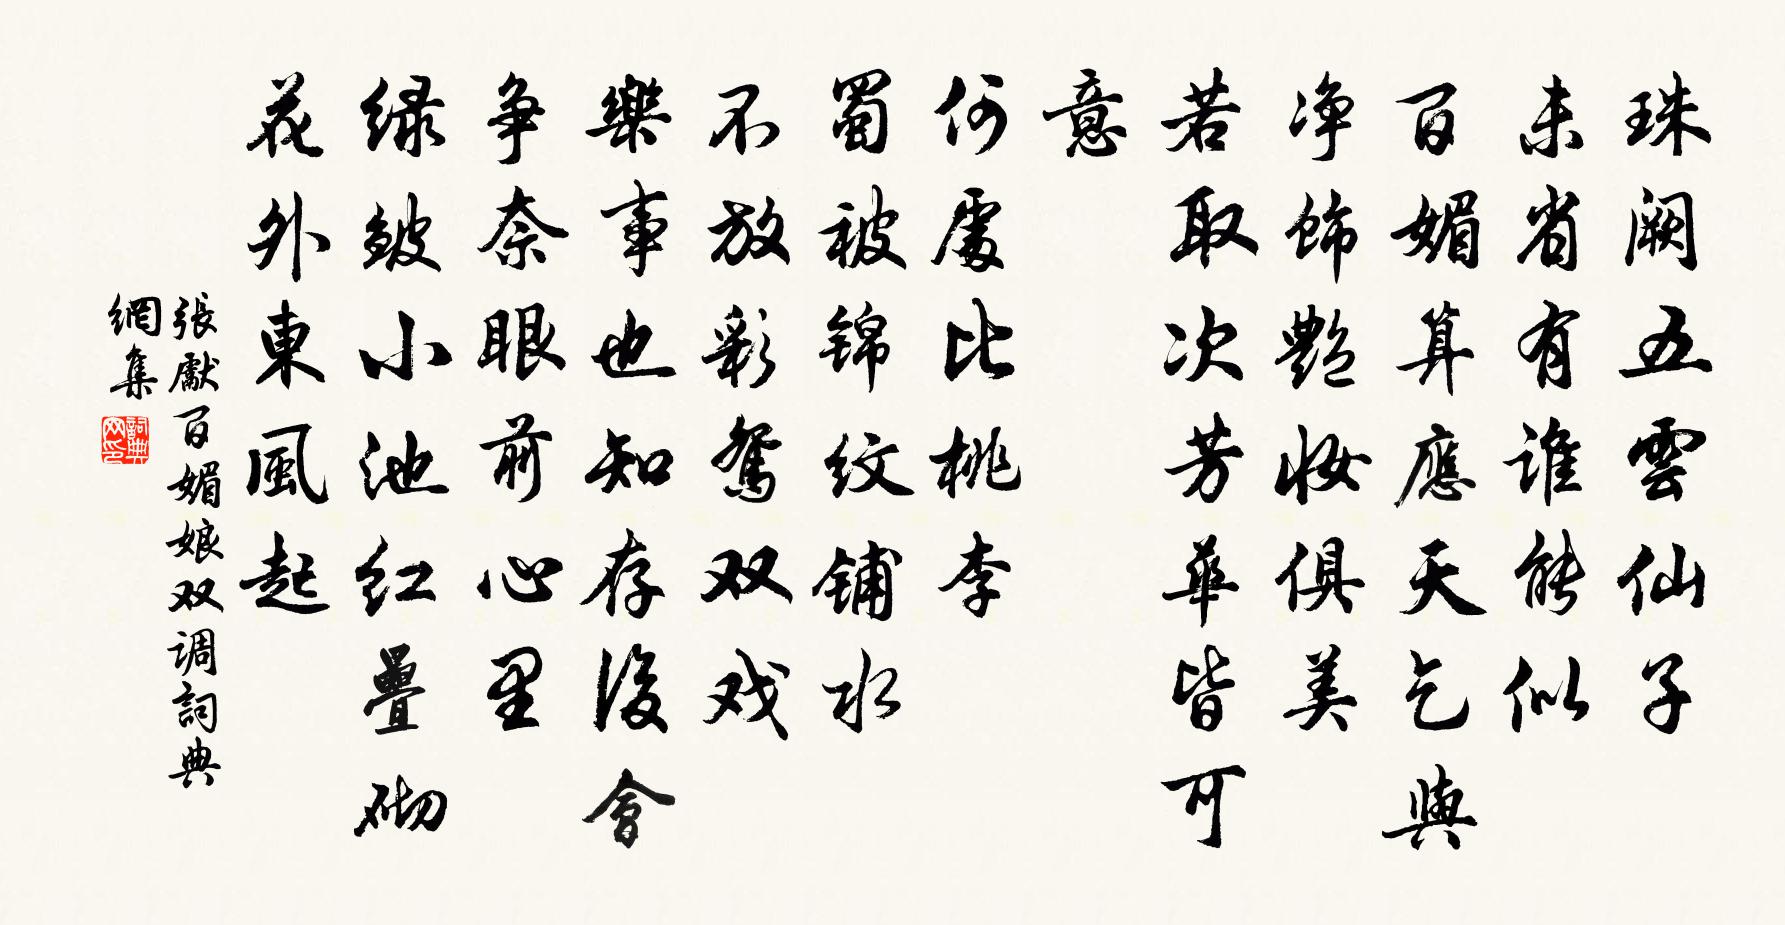 珠阙五雲仙子
未省有谁能似
百媚算應天乞與
净飾艷妝俱美
若取次芳華皆可
意
何處比桃李
蜀被锦纹铺水
不放彩鸳双戏
樂事也知存後會
争奈眼前心里
绿皱小池红疊砌
花外東風起
張獻百媚娘双调詞典
網集
詞典
网印